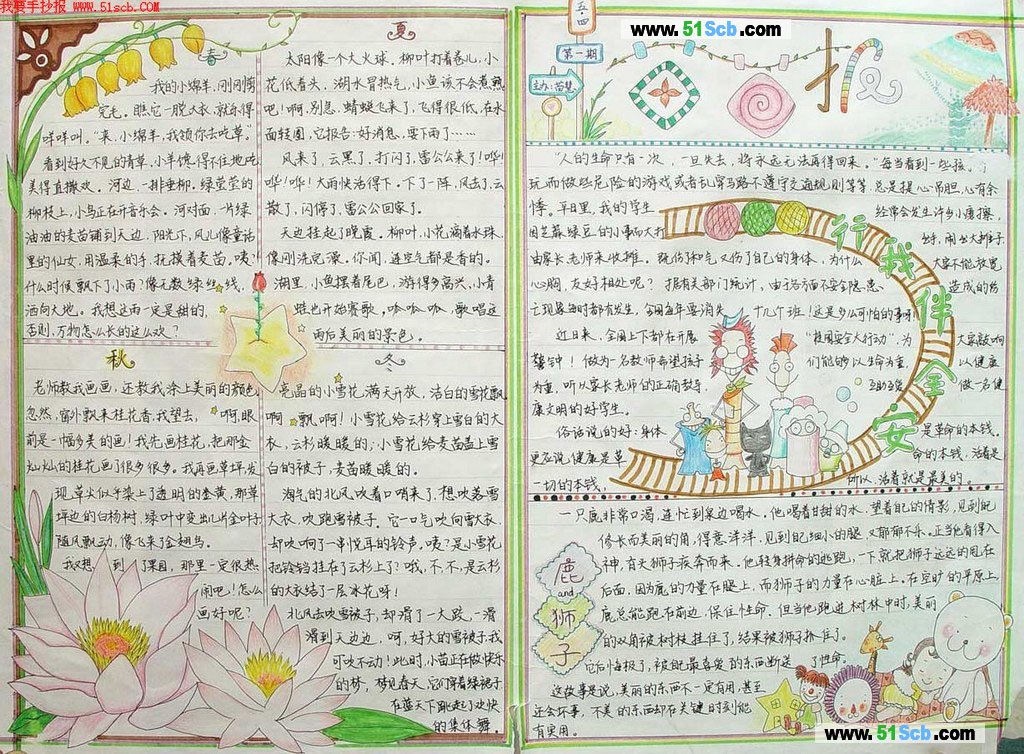 我要手抄报 www.51scb.com
春
我的小绵羊,刚刚剪
完毛。瞧,它一脱大衣,就乐得
咩咩叫。“来,小绵羊,我领你去吃草。”
看到好久不见的青草,小羊馋得不住地吃,
美得直撒欢。河边,一排垂柳。绿莹莹的
柳枝上,小鸟正在开音乐会。河对面,一片绿
油油的麦苗铺到天边。阳光下,风儿像童话
里的仙女,用温柔的手,抚摸着麦苗。咦?
什么时候飘下了小雨?像无数绿丝线,
洒向大地。我想这雨一定是甜的,
否则,万物怎么长的这么欢?
夏
太阳像一个大火球,柳叶打着卷儿,小
花低着头,湖水冒热气,小鱼该不会煮熟
吧!啊,别急,蜻蜓飞来了,飞得很低,在水
面转圈,它报告:好消息,要下雨了……
风来了,云黑了,打闪了,雷公公来了!哗!
哗!哗!大雨快活得下。下了一阵,风去了,云
散了,闪停了,雷公公回家了。
天边挂起了晚霞。柳叶,小花滴着水珠,
像刚洗完澡。你闻,连空气都是香的。
湖里,小鱼摆着尾巴,游得多高兴,小青
蛙也开始赛歌,呱呱呱,歌唱这
雨后美丽的景色。
秋
老师教我画画,还教我涂上美丽的颜色,
忽然,窗外飘来桂花香,我望去,啊,眼
前是一幅多美的画!我先画桂花,把那金
灿灿的桂花画了很多很多。我再画草坪,发
现草尖似乎染上了透明的金黄,那草
坪边的白杨树,绿叶中变出片片金叶子
随风飘动,像飞来了金翅鸟。
我又想到了果园,那里一定很热
闹吧!怎么
画好呢?
冬
亮晶的小雪花,满天开放,洁白的雪花飘
啊,飘啊!小雪花给云杉穿上雪白的大
衣,云杉暖暖的;小雪花给麦苗盖上雪
白的被子,麦苗暖暖的。
淘气的北风吹着口哨来了,想吹落雪
大衣,吹跑雪被子,它一口气吹向雪大衣,
却吹响了一串悦耳的铃声,咦?是小雪花
把铃铛挂在了云杉上了?哦,不,不,是云杉
的大衣结了一层冰花呀!
北风去吹雪被子,却滑了一大跤,一滑
滑到天边边,呵,好大的雪被子,我
可吹不动!此时,小苗正在做快乐
的梦,梦见春天,它们穿着绿裙子
在蓝天下跳起了欢快
的集体舞。
五·四
第一期
www.51Scb.com
报
“人的生命只有一次,一旦失去,将永远无法再得回来。”每当看到一些孩子
玩而做些危险的游戏或者乱穿马路不遵守交通规则等等,总是提心吊胆,心有余
悸。平日里,我的学生 经常会发生许多小磨擦,
因芝麻绿豆的小事而大打 出手,闹出大摊子
由家长老师来收摊。既伤和气又伤了自己的身体,为什么 大家不能放宽
心胸,友好相处呢?据有关部门统计,由于治方面不安全隐患, 造成的伤
亡现象每时都有发生,全国每年要消失 十几个班!这是多么可怕的事啊!
近日来,全国上下都在开展 “校园安全大行动”,为 大家敲响
警钟!做为一名教师希望孩子 们能够以生命为重, 以健康
为重,听从家长老师的正确教导, 互助互爱 做一名健
康文明的好学生。
俗话说的好:身体 是革命的本钱。
更应说,健康是革 命的本钱,活着是
一切的本钱, 所以,活着就是最美的。
行我伴全安
鹿
and
狮
子
一只鹿非常口渴,连忙到泉边喝水。他喝着甘甜的水,望着自己的倩影,见到他
修长而美丽的角,得意洋洋,见到他细小的腿,又郁郁不乐。正当他看得入
神,有头狮子疾奔而来。他轻身拼命的逃跑,一下就把狮子远远的甩在
后面,因为鹿的力量在腿上,而狮子的力量在心脏上。在空旷的平原上,
鹿总能跑在前边,保住性命。但当他跑进树林中时,美丽
的双角被树枝挂住了,结果被狮子抓住了。
它后悔极了,被他最喜爱的东西断送了性命。
这故事是说,美丽的东西不一定有用,甚至
还会坏事,不美的东西却在关键时刻能
有实用。
www.51Scb.com